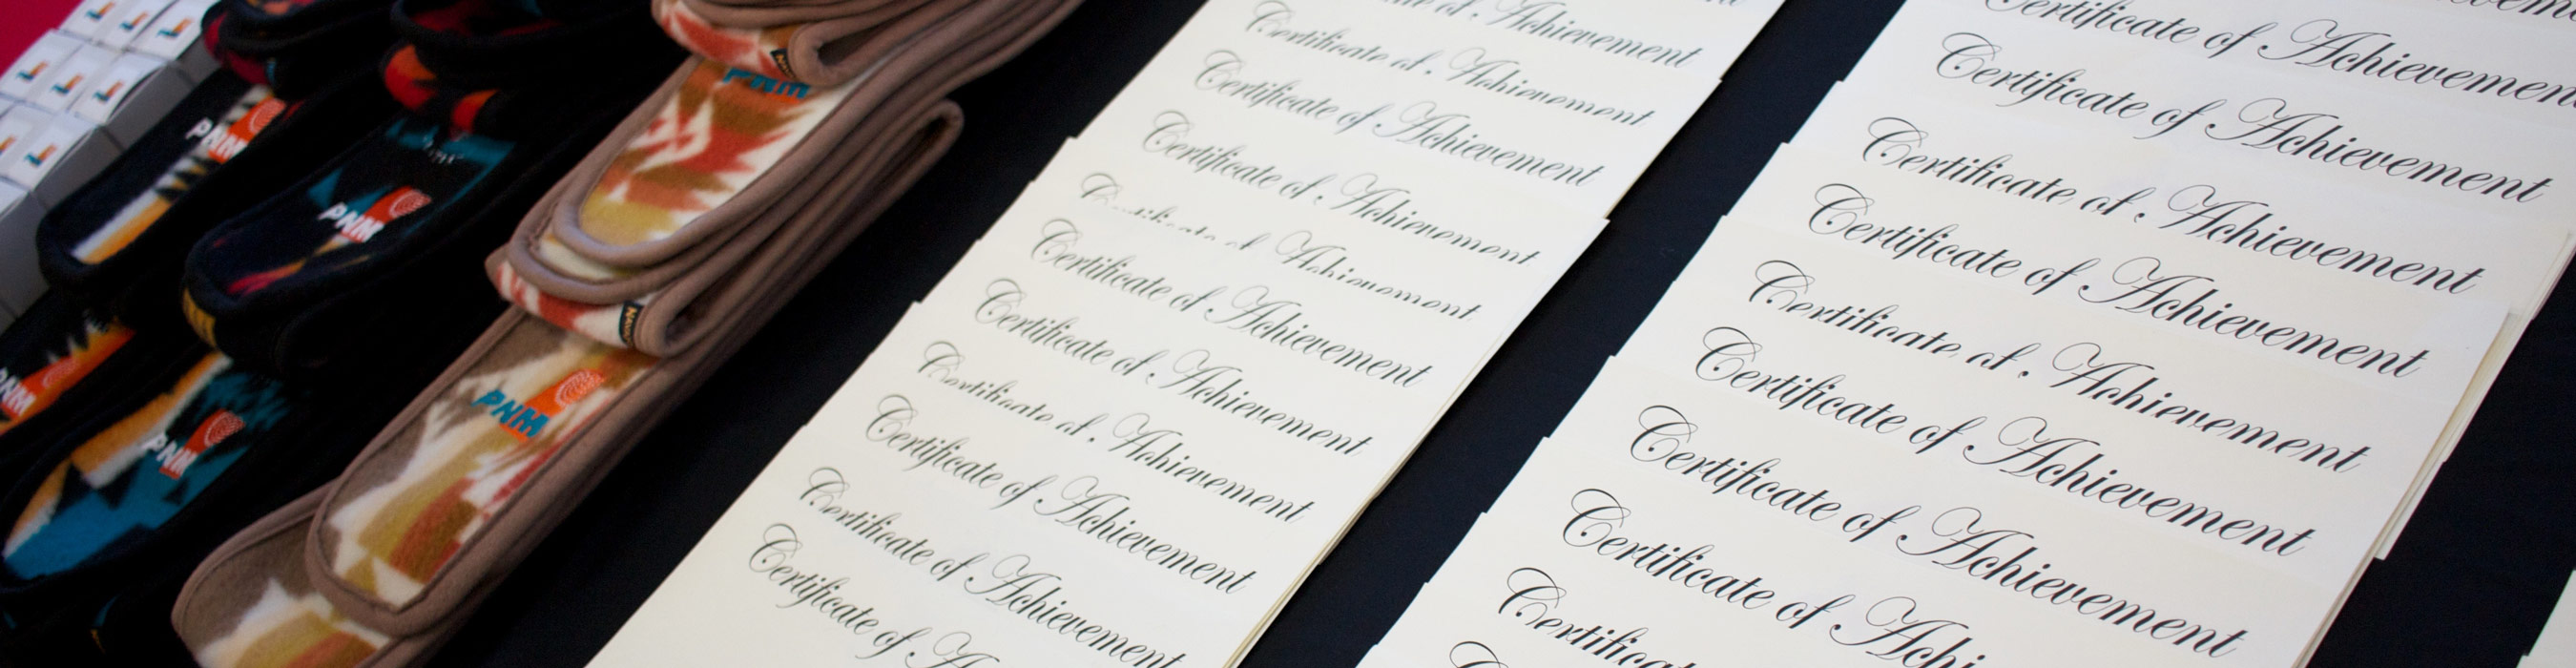 PNM
PNM
PNM
PNM
PNM
PNM
Achievement
Certificate of Achievement
Certificate of Achievement
Certificate of Achievement
Certificate of Achievement
Certificate of Achievement
Certificate of Achievement
Certificate of Achievement
Certificate of Achievement
Certificate of Achievement
Certificate of
Certificate of Achievement
Certificate of Achievement
Certificate of Achievement
Certificate of Achievement
Certificate of Achievement
Certificate of Achievement
Certificate of Achievement
Certificate of